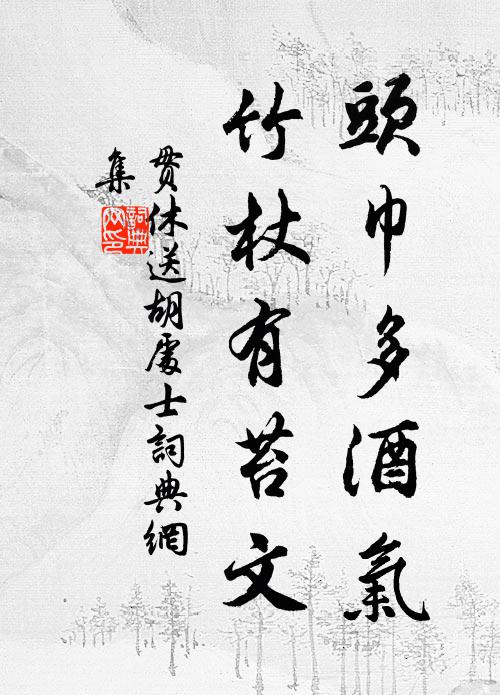 頭巾多酒氣
竹杖有苔文
貫休送胡處士詞典網
集
詞典網印